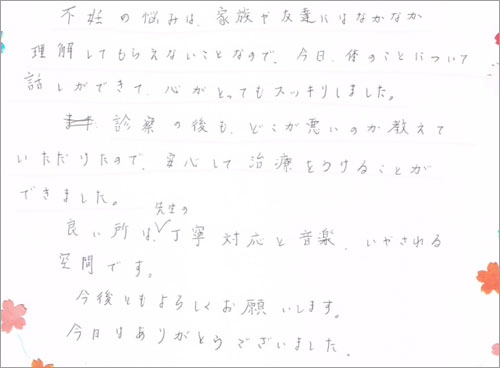 不妊の悩みは、家族や友達にはなかなか
理解してもらえないことなので、今日、体のことについて
話しができて、心がとってもスッキリしました。
また、診察の後も、どこが悪いのか教えて
いただけたので、安心して治療をうけることが
できました。
良い所は、先生の丁寧対応と音楽、いやされる
空間です。
今後ともよろしくお願いします。
今日はありがとうございました。